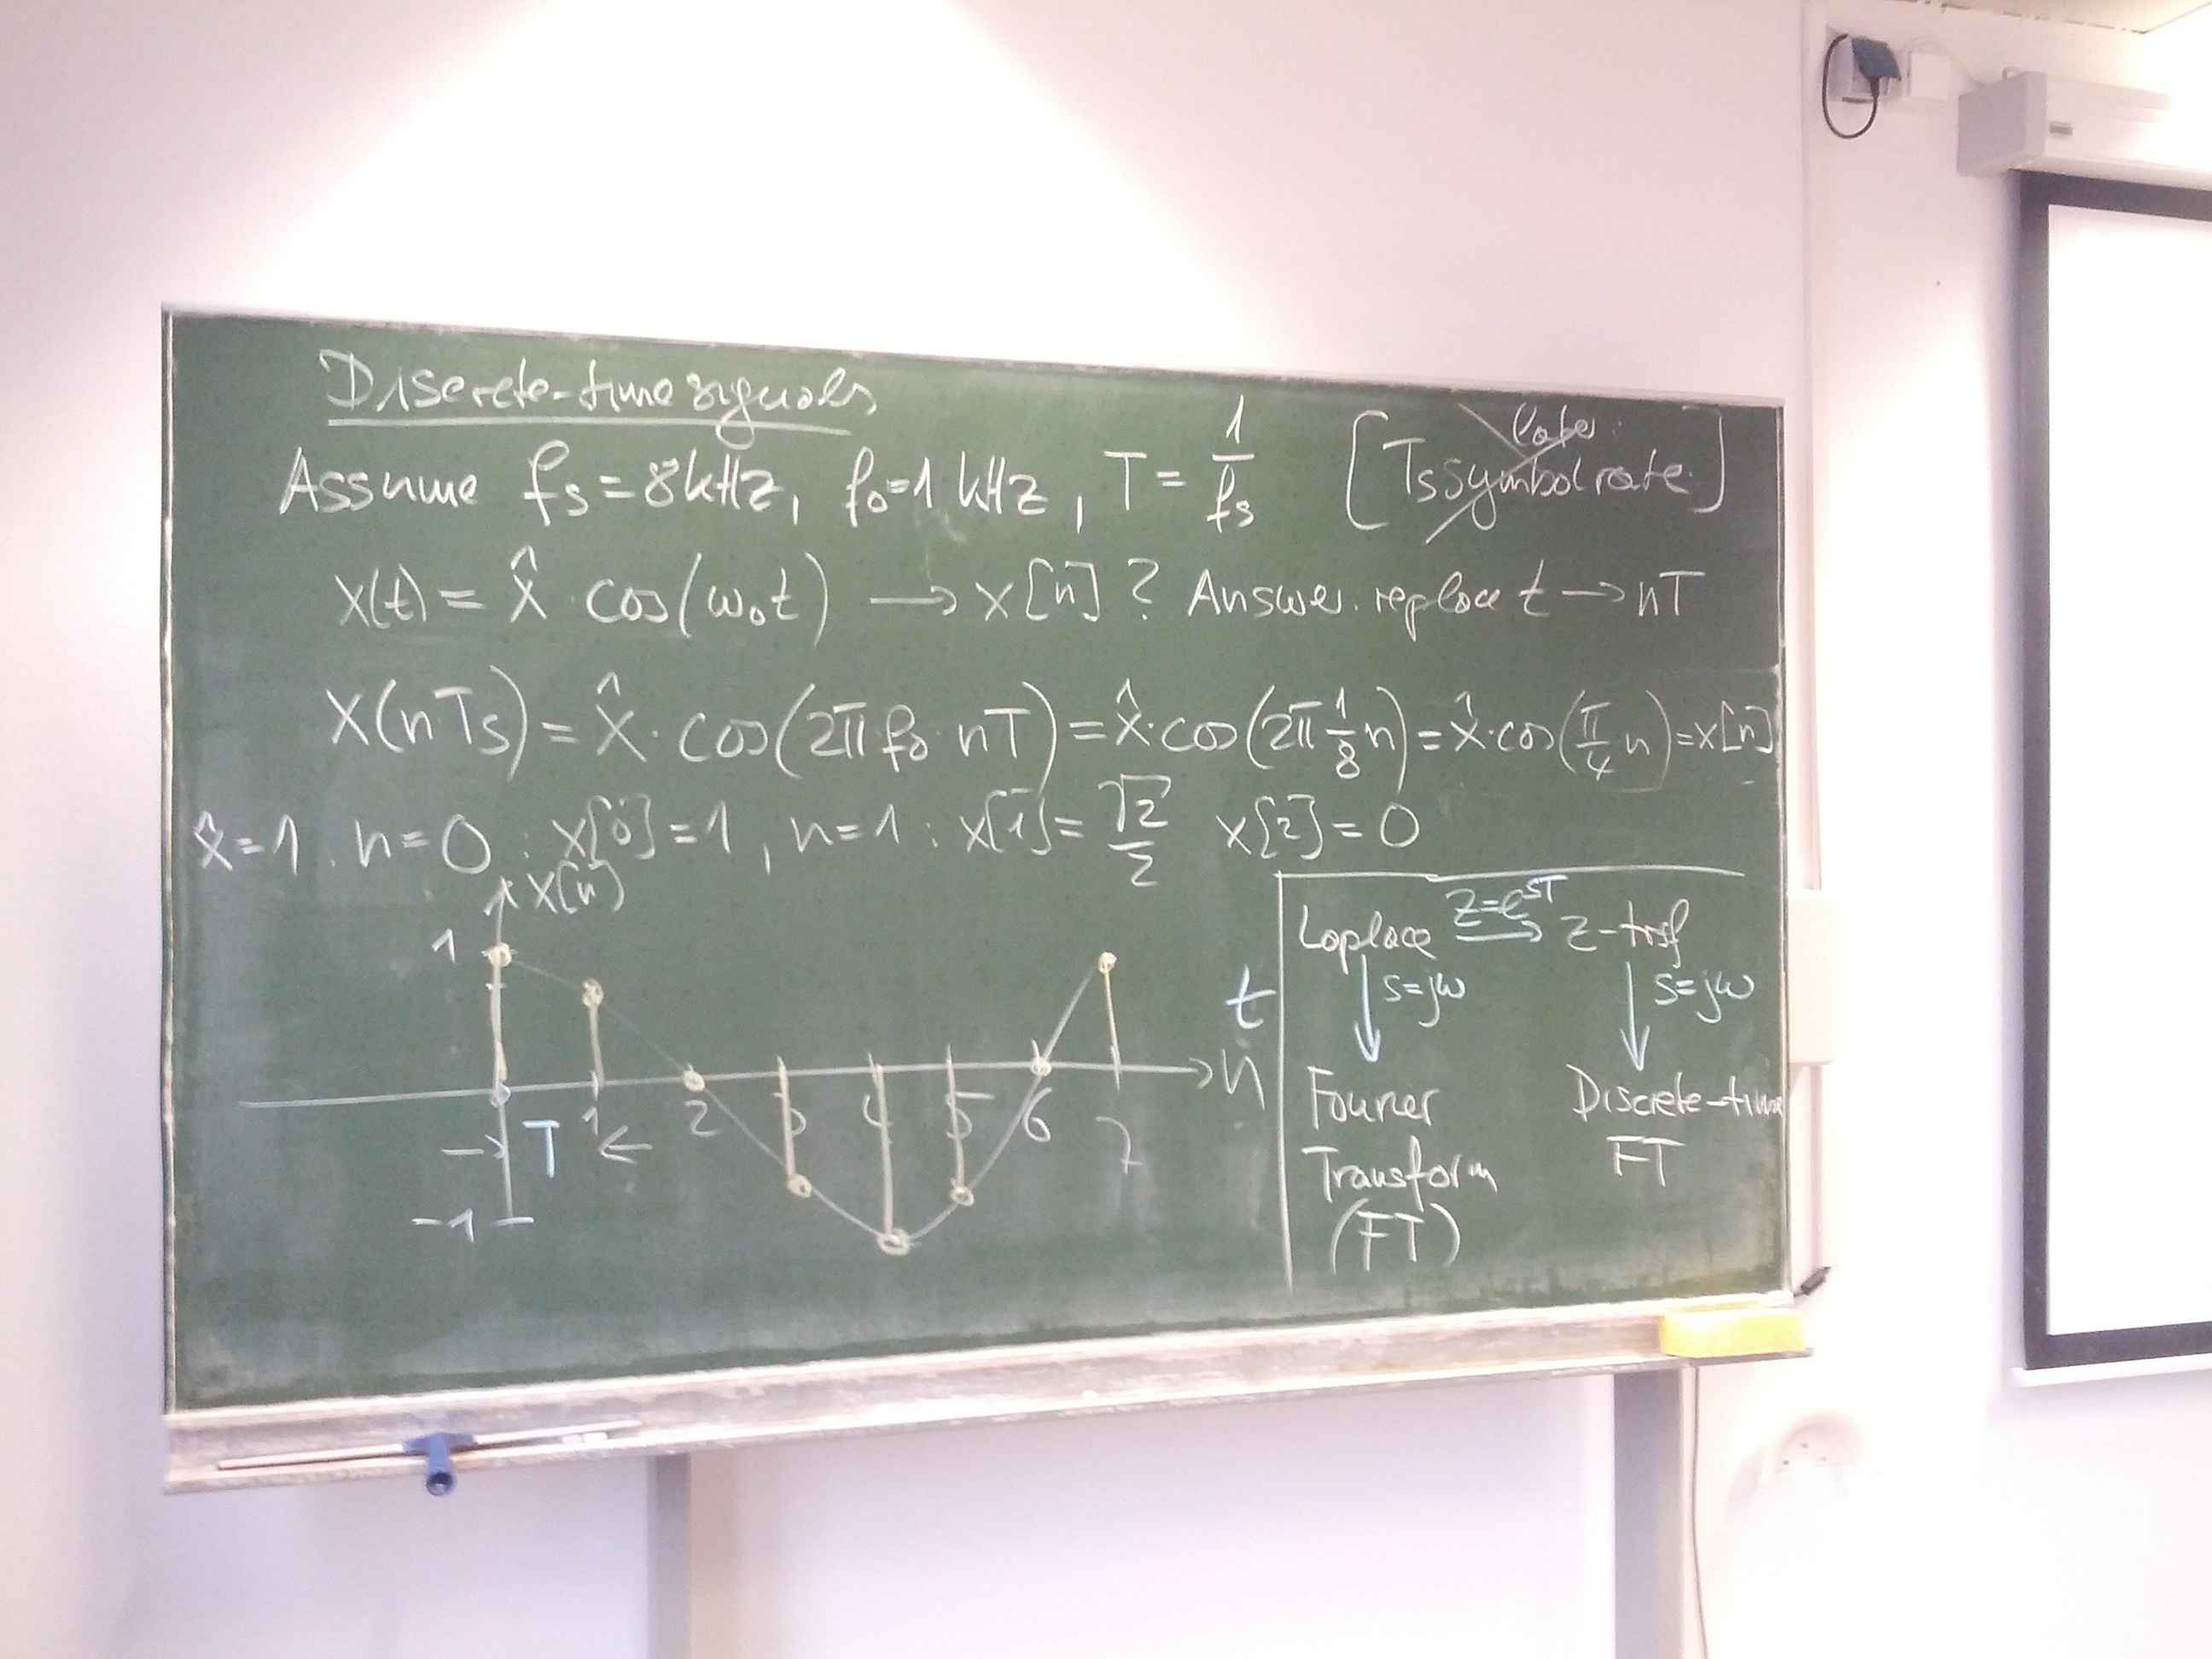 Discrete-time signals
Assume fs=8kHz, f0=1 kHz, T = 1/fs [later: Ts symbol rate.]
x(t) = x̂ · cos(ω0t) → x[n] ? Answer. replace t → nT
x(nTs) = x̂ · cos(2π f0 · nT) = x̂ · cos(2π 1/8 n) = x̂ · cos(π/4 n) = x[n]
x̂=1 . n=0 : x[0]=1 , n=1 : x[1]= √2/2 x[2]=0
x[n]
1
t
0 1 2 3 4 5 6 7 n
→ T ←
-1
Laplace z=e^sT → z-trsf
↓ s=jω ↓ s=jω
Fourier Discrete-time
Transform FT
(FT)